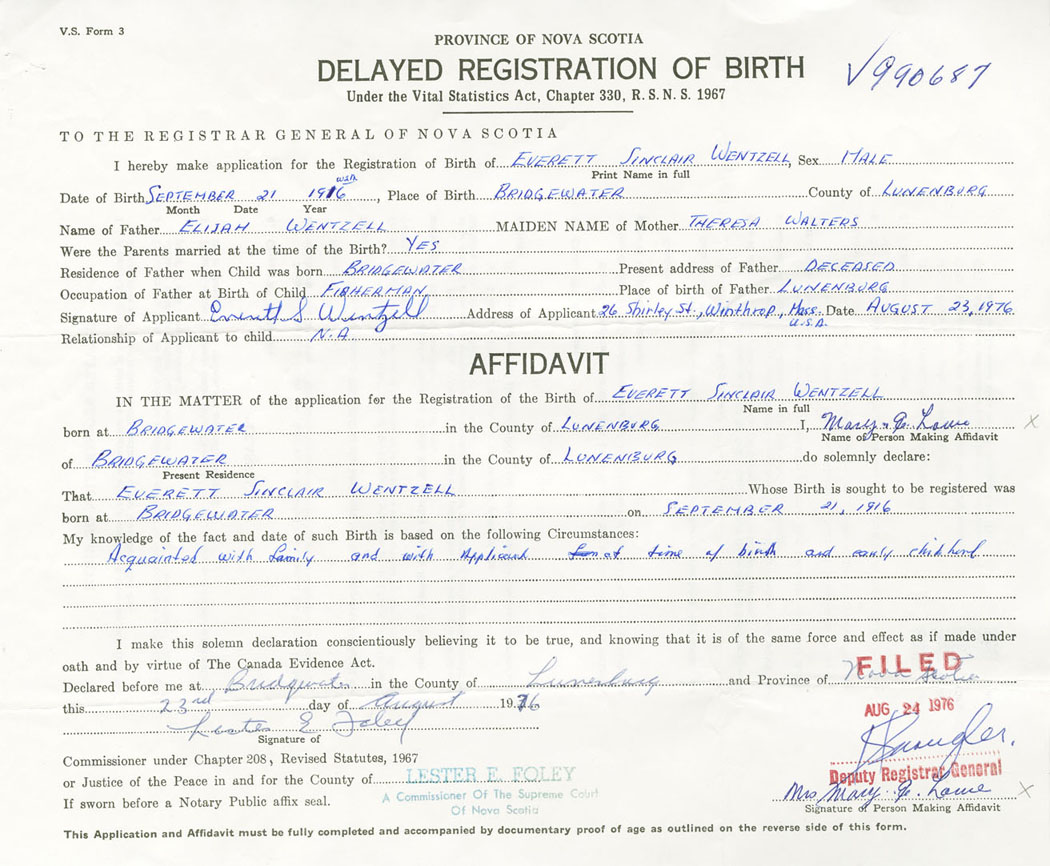 V.S. Form 3
PROVINCE OF NOVA SCOTIA
DELAYED REGISTRATION OF BIRTH
V990687
Under the Vital Statistics Act, Chapter 330, R.S.N.S. 1967
TO THE REGISTRAR GENERAL OF NOVA SCOTIA
I hereby make application for the Registration of Birth of EVERETT SINCLAIR WENTZELL, Sex MALE
Print Name in full
Date of Birth SEPTEMBER 21 1916, Place of Birth BRIDGEWATER County of LUNENBURG
Month Date Year
Name of Father ELIJAH WENTZELL MAIDEN NAME of Mother THERESA WALTERS
Were the Parents married at the time of the Birth? YES
Residence of Father when Child was born BRIDGEWATER Present address of Father DECEASED
Occupation of Father at Birth of Child FISHERMAN Place of birth of Father LUNENBURG
Signature of Applicant Everett S Wentzell Address of Applicant 26 Shirley St., Winthrop, Mass. U.S.A. Date AUGUST 23, 1976
Relationship of Applicant to child N.A
AFFIDAVIT
IN THE MATTER of the application for the Registration of the Birth of EVERETT SINCLAIR WENTZELL
Name in full
born at BRIDGEWATER in the County of LUNENBURG I, Mary E. Lowe X
Name of Person Making Affidavit
of BRIDGEWATER in the County of LUNENBURG do solemnly declare:
Present Residence
That EVERETT SINCLAIR WENTZELL Whose Birth is sought to be registered was
born at BRIDGEWATER on SEPTEMBER 21, 1916
My knowledge of the fact and date of such Birth is based on the following Circumstances:
Acquainted with family and with Applicant at time of birth and early childhood
I make this solemn declaration conscientiously believing it to be true, and knowing that it is of the same force and effect as if made under
oath and by virtue of The Canada Evidence Act.
Declared before me at Bridgewater in the County of Lunenburg and Province of Nova Scotia
FILED
this 23rd day of August 1976
AUG 24 1976
Lester E Foley
Signature of
Commissioner under Chapter 208, Revised Statutes, 1967
or Justice of the Peace in and for the County of LESTER E. FOLEY
Deputy Registrar General
A Commissioner Of The Supreme Court
Of Nova Scotia
If sworn before a Notary Public affix seal.
Mrs Mary E. Lowe X
Signature of Person Making Affidavit
This Application and Affidavit must be fully completed and accompanied by documentary proof of age as outlined on the reverse side of this form.